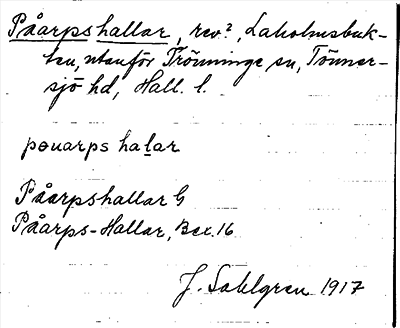 Påarpshallar, rev?, Laholmsbuk-
ten, utanför Trönninge sn, Tönner-
sjö hd, Hall. l.
pɵuarps halar
Påarpshallar G
Påarps-Hallar, Bex. 16
J. Sahlgren 1917